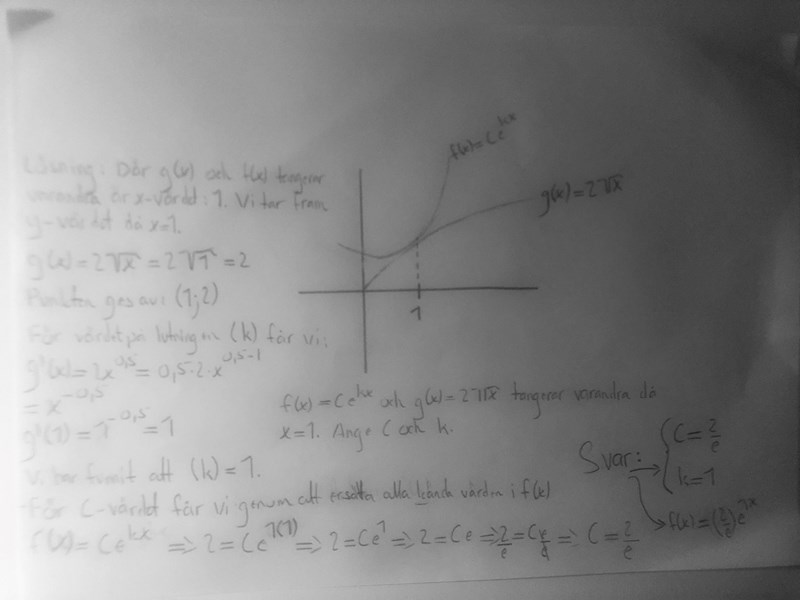 f(x)=Ce^kx
Lösning: Där g(x) och f(x) tangerar
varandra är x-värdet: 1. Vi tar fram
y-värdet då x=1.
g(x)=2√x
g(x)=2√x=2√1=2
Punkten ges av: (1;2)
1
För värdet på lutningen (k) får vi:
g'(x)=2x^0,5=0,5·2·x^0,5-1
=x^-0,5
g'(1)=1^-0,5=1
f(x)=Ce^kx och g(x)=2√x tangerar varandra då
x=1. Ange C och k.
Vi har funnit att (k)=1.
För C-värdet får vi genom att ersätta alla kända värden i f(x)
f(x)=Ce^kx ⇒ 2=Ce^1(1) ⇒ 2=Ce^1 ⇒ 2=Ce ⇒ 2/e=Ce/e ⇒ C=2/e
Svar: → { C=2/e
k=1
→ f(x)=(2/e)e^1x